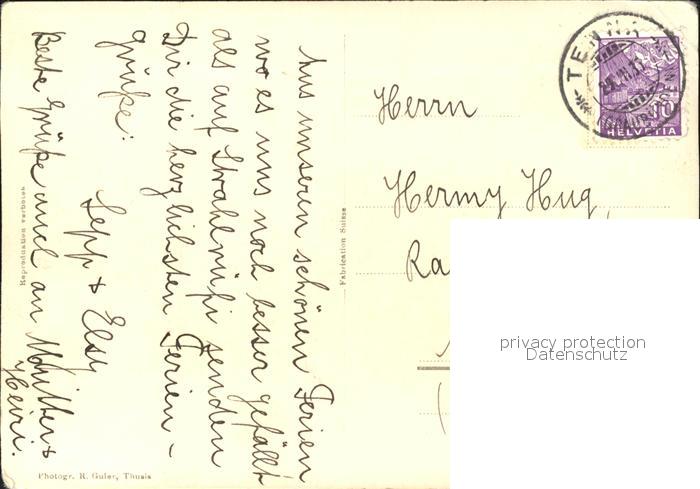 Aus unseren schönen Ferien
wo es uns noch besser gefällt
als auf Strahlrüfi senden
Dir die herzlichsten Ferien-
grüße:
Sepp & Elsy
Beste Grüße auch an Mutter &
Heiri.
Reproduction verboten
Photogr. R. Guler, Thusis
Fabrication Suisse
Herrn
Hermy Hug,
Ra
TENNA
HELVETIA
10
privacy protection
Datenschutz